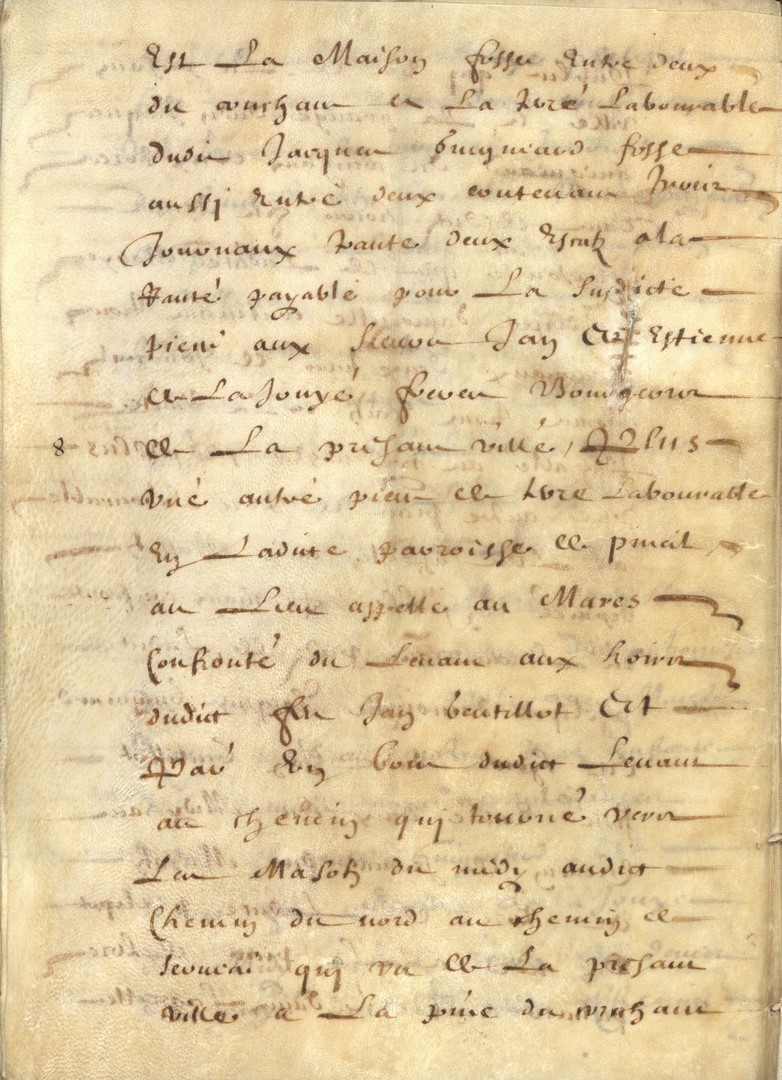 Est La Maison fosse Entre deux
du couchant et La terre Labourable
dudit Jacques guigniard fosse
aussi Entre deux contenant trois
Journaux trante deux Escatz a la
ranté payable pour La Susdicte
piece aux Sieurs Jan Et Estienne
de La Jouye freres Bourgeois
8 de La presant ville, Plus
Une autre piece de terre Labourable
En Ladite parroisse de pineil
au Lieu appelle au Mares
Confronté du Levant aux hoirs
dudict feu Jan boutillot Et
Par En bout dudict Levant
au chemin qui tourne vers
La Masoh du midy audict
Chemin du nord au chemin de
qui va de La presant
ville a La du couchant